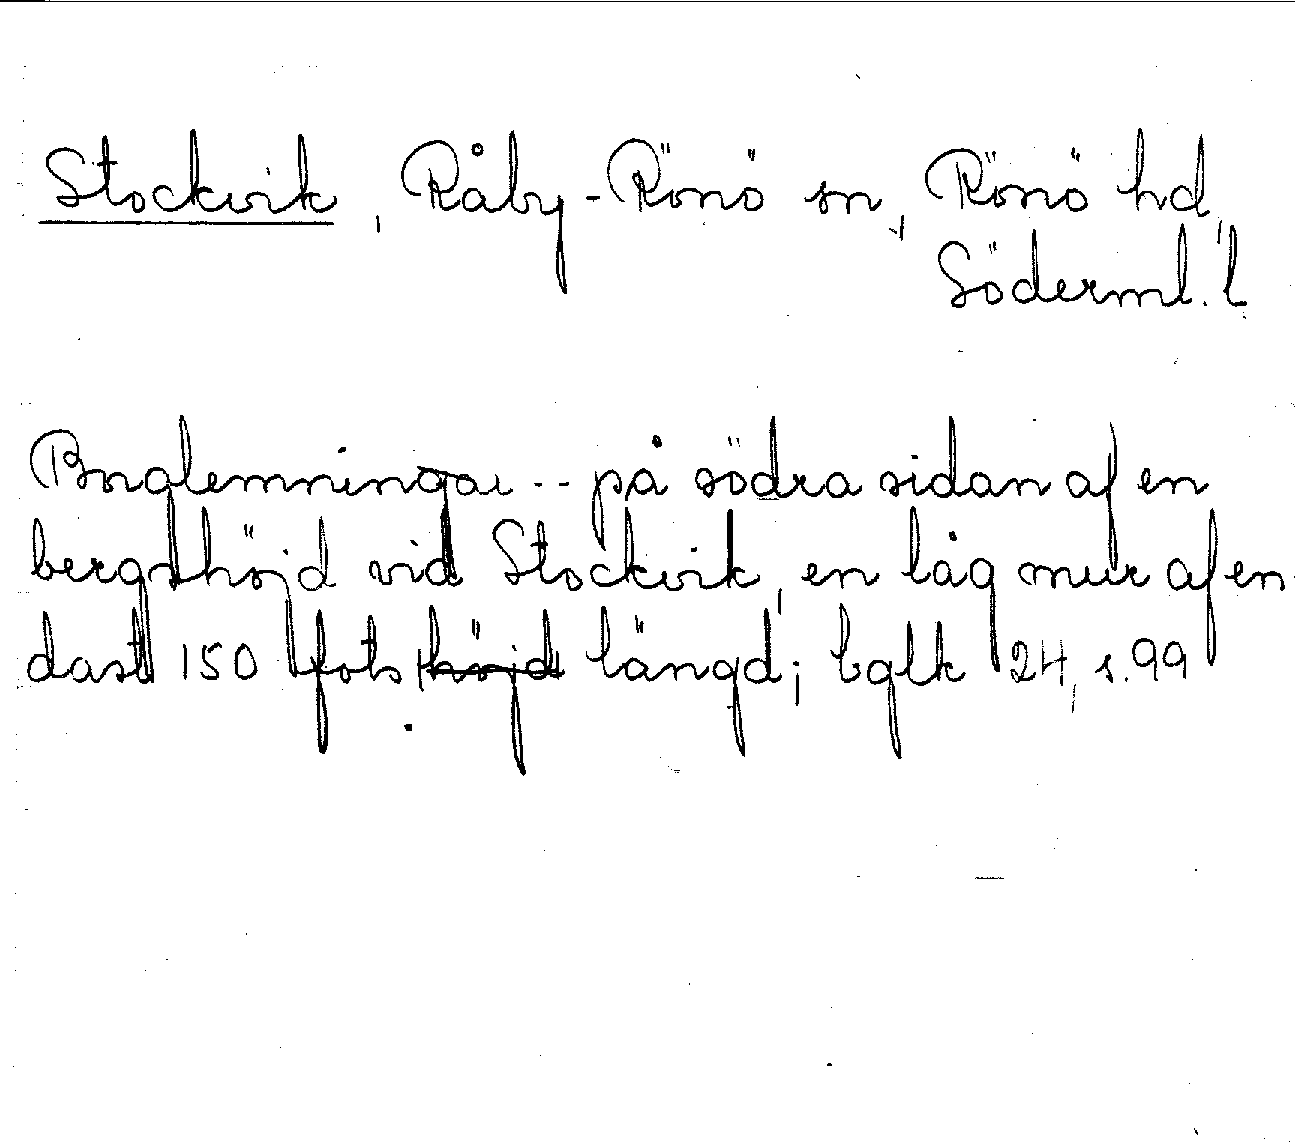 Stockvik, Råby-Rönö sn, Rönö hd,
Söderml. l.
Borglemningar -- på södra sidan af en
bergshöjd vid Stockvik, en låg mur af en-
dast 150 fots höjd längd; bglk 24, s. 99